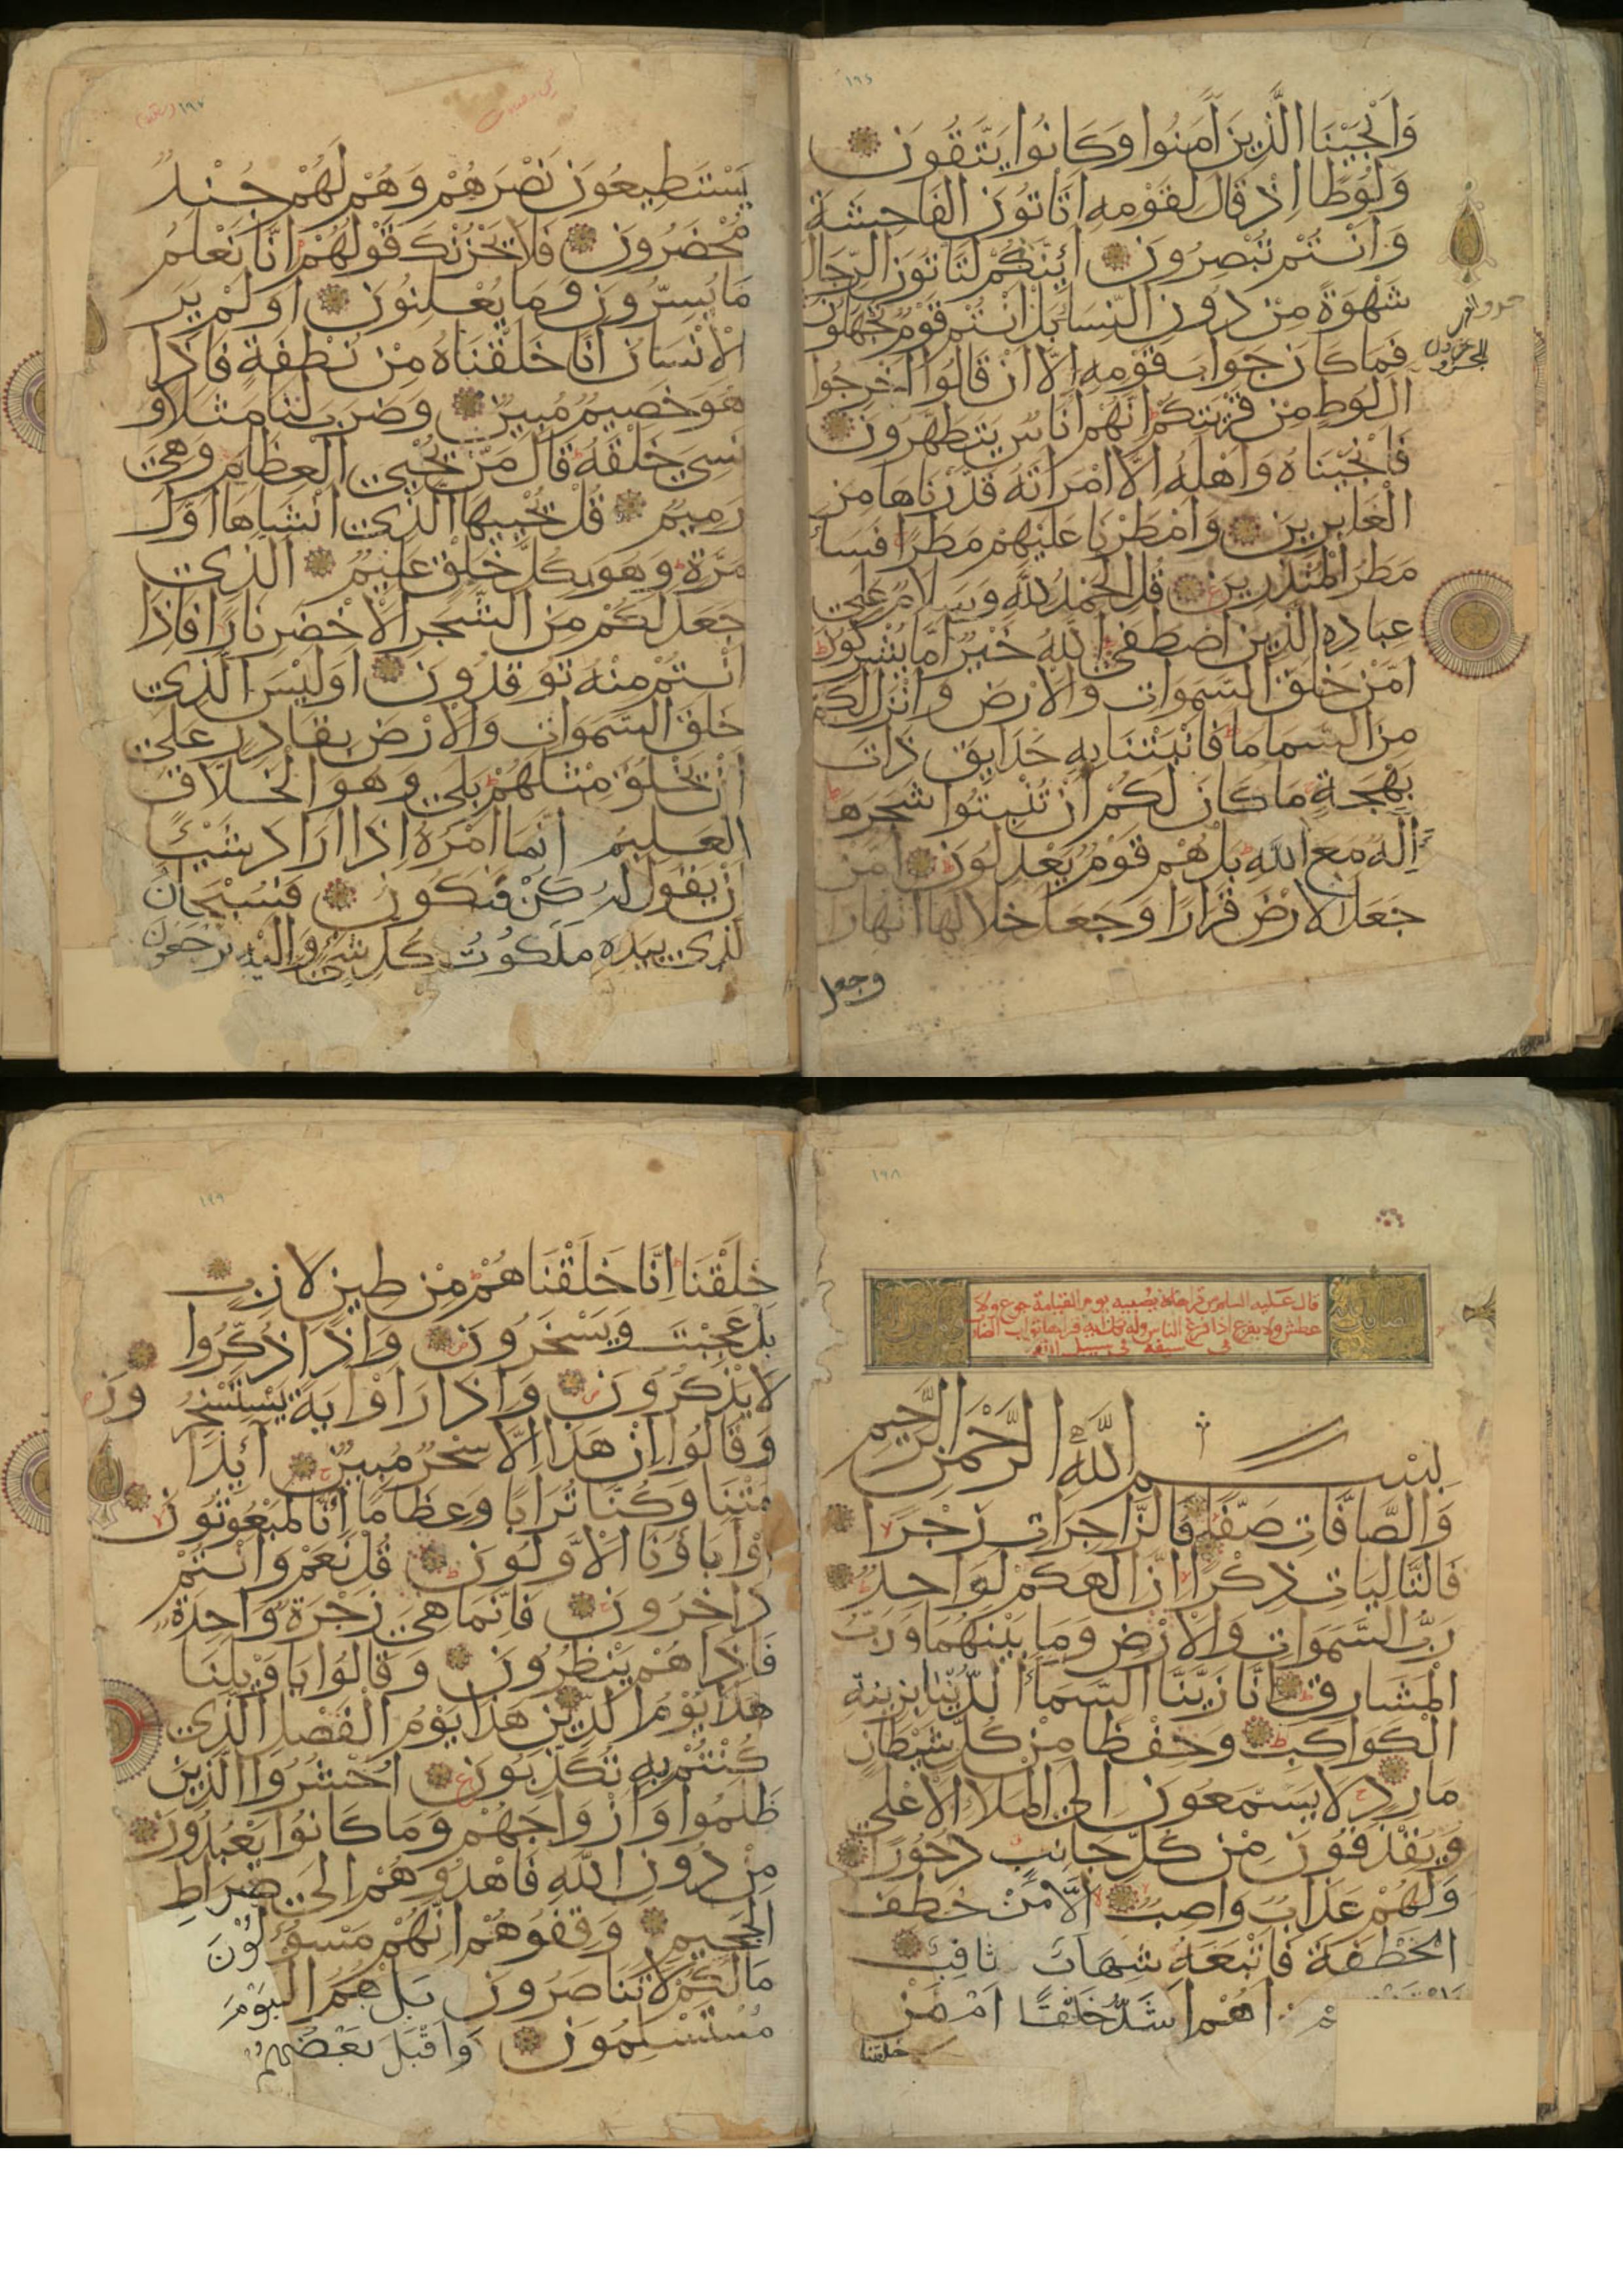 ١٩٤
وَاَنْجَيْنَا الَّذِينَ اٰمَنُوا وَكَانُوا يَتَّقُونَ
وَلُوطًا اِذْ قَالَ لِقَوْمِهِ اَتَأتُونَ الفَاحِشَةَ
وَاَنْتُمْ تُبْصِرُونَ اَئِنَّكُمْ لَتَاتُونَ الرِّجَالَ
شَهْوَةً مِنْ دُونِ النِّسَا بَلْ اَنْتُم قَوْمٌ تَجْهَلُونَ
فَمَا كَانَ جَوَابَ قَوْمِهِ اِلَّا اَنْ قَالُوا اَخرِجُوا
اٰلَ لُوطٍ مِنْ قَرْيَتِكُمْ اِنَّهُمْ اُنَاسٌ يَتَطَهَّرُونَ
فَاَنْجَيْنَاهُ وَاَهْلَهُ اِلَّا امْرَاَتَهُ قَدَّرْنَاهَا مِنَ
الْغَابِرِينَ وَاَمْطَرْنَا عَلَيْهِمْ مَطَرًا فَسَاءَ
مَطَرُ الْمُنْذَرِينَ قُلِ الحَمْدُ لِلّٰهِ وَسَلَامٌ عَلٰى
عِبَادِهِ الَّذِينَ اصْطَفٰى اَللّٰهُ خَيْرٌ اَمَّا يُشْرِكُونَ
اَمَّنْ خَلَقَ السَّمٰوَاتِ وَالاَرْضَ وَاَنْزَلَ لَكُمْ
مِنَ السَّمَا مَا فَاَنْبَتْنَا بِهِ حَدَايِقَ ذَاتَ
بَهْجَةٍ مَا كَانَ لَكُمْ اَنْ تُنْبِتُوا شَجَرَهَا
ءَاِلٰهٌ مَعَ اللّٰهِ بَلْ هُمْ قَوْمٌ يَعْدِلُونَ اَمَّنْ
جَعَلَ الاَرْضَ قَرَارًا وَجَعَلَ خِلَالَهَا اَنْهَارًا
وجعل
١٩٧
يَسْتَطِيعُونَ نَصْرَهُمْ وَهُمْ لَهُمْ جُنْدٌ
مُحْضَرُونَ فَلَا يَحْزُنْكَ قَوْلُهُمْ اِنَّا نَعْلَمُ
مَا يُسِرُّونَ وَمَا يُعْلِنُونَ اَوَلَمْ يَرَ
الْاِنْسَانُ اَنَّا خَلَقْنَاهُ مِنْ نُطْفَةٍ فَاِذَا
هُوَ خَصِيمٌ مُبِينٌ وَضَرَبَ لَنَا مَثَلًا وَ
نَسِيَ خَلْقَهُ قَالَ مَنْ يُحْيِي العِظَامَ وَهِيَ
رَمِيمٌ قُلْ يُحْيِيهَا الَّذِي اَنْشَاَهَا اَوَّلَ
مَرَّةٍ وَهُوَ بِكُلِّ خَلْقٍ عَلِيمٌ اَلَّذِي
جَعَلَ لَكُمْ مِنَ الشَّجَرِ الْاَخْضَرِ نَارًا فَاِذَا
اَنْتُمْ مِنْهُ تُوقِدُونَ اَوَلَيْسَ الَّذِي
خَلَقَ السَّمٰوَاتِ وَالْاَرْضَ بِقَادِرٍ عَلٰى
اَنْ يَخْلُقَ مِثْلَهُمْ بَلٰى وَهُوَ الْخَلَّاقُ
العَلِيمُ اِنَّمَا اَمْرُهُ اِذَا اَرَادَ شَيْئًا
اَنْ يَقُولَ لَهُ كُنْ فَيَكُونُ فَسُبْحَانَ
الَّذِي بِيَدِهِ مَلَكُوتُ كُلِّ شَيْءٍ وَاِلَيْهِ تُرْجَعُونَ
١٩٨
قال عليه السلم من قراها لا يصيبه يوم القيامة جوع ولا
عطش ولا يفزع اذا فزع الناس وله بكل اية قراها ثواب
بسيفه في سبيل الله
بِسْمِ اللّٰهِ الرَّحْمٰنِ الرَّحِيمِ
وَالصَّافَّاتِ صَفًّا فَالزَّاجِرَاتِ زَجْرًا
فَالتَّالِيَاتِ ذِكْرًا اِنَّ اِلٰهَكُمْ لَوَاحِدٌ
رَبُّ السَّمٰوَاتِ وَالْاَرْضِ وَمَا بَيْنَهُمَا وَرَبُّ
الْمَشَارِقِ اِنَّا زَيَّنَّا السَّمَاءَ الدُّنْيَا بِزِينَةٍ
الْكَوَاكِبِ وَحِفْظًا مِنْ كُلِّ شَيْطَانٍ
مَارِدٍ لَا يَسَّمَّعُونَ اِلَى الْمَلَاِ الْاَعْلٰى
وَيُقْذَفُونَ مِنْ كُلِّ جَانِبٍ دُحُورًا
وَلَهُمْ عَذَابٌ وَاصِبٌ اِلَّا مَنْ خَطِفَ
الْخَطْفَةَ فَاَتْبَعَهُ شِهَابٌ ثَاقِبٌ
اَهُمْ اَشَدُّ خَلْقًا اَمْ مَنْ
خلقنا
١٩٩
خَلَقْنَا اِنَّا خَلَقْنَاهُمْ مِنْ طِينٍ لَازِبٍ
بَلْ عَجِبْتَ وَيَسْخَرُونَ وَاِذَا ذُكِّرُوا
لَا يَذْكُرُونَ وَاِذَا رَاَوْا اٰيَةً يَسْتَسْخِرُونَ
وَقَالُوا اِنْ هٰذَا اِلَّا سِحْرٌ مُبِينٌ اَئِذَا
مِتْنَا وَكُنَّا تُرَابًا وَعِظَامًا اَئِنَّا لَمَبْعُوثُونَ
اَوَاٰبَاؤُنَا الْاَوَّلُونَ قُلْ نَعَمْ وَاَنْتُمْ
دَاخِرُونَ فَاِنَّمَا هِيَ زَجْرَةٌ وَاحِدَةٌ
فَاِذَا هُمْ يَنْظُرُونَ وَقَالُوا يَا وَيْلَنَا
هٰذَا يَوْمُ الدِّينِ هٰذَا يَوْمُ الْفَصْلِ الَّذِي
كُنْتُمْ بِهِ تُكَذِّبُونَ اُحْشُرُوا الَّذِينَ
ظَلَمُوا وَاَزْوَاجَهُمْ وَمَا كَانُوا يَعْبُدُونَ
مِنْ دُونِ اللّٰهِ فَاهْدُوهُمْ اِلٰى صِرَاطِ
الْجَحِيمِ وَقِفُوهُمْ اِنَّهُمْ مَسْؤُلُونَ
مَا لَكُمْ لَا تَنَاصَرُونَ بَلْ هُمُ الْيَوْمَ
مُسْتَسْلِمُونَ وَاَقْبَلَ بَعْضُهُمْ